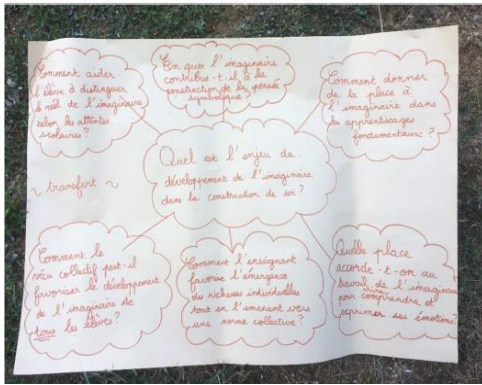 Comment aider
l'élève à distinguer
le réel de l'imaginaire
selon les attentes
scolaires ?
En quoi l'imaginaire
contribue-t-il à la
construction de la pensée
symbolique ?
Comment donner
de la place à
l'imaginaire dans
les apprentissages
fondamentaux ?
Quel est l'enjeu du
développement de l'imaginaire
dans la construction de soi ?
~ transfert ~
Comment le
vécu collectif peut-il
favoriser le développement
de l'imaginaire de
tous les élèves ?
Comment l'enseignant
favorise l'émergence
des richesses individuelles
tout en l'amenant vers
une norme collective ?
Quelle place
accorde-t-on au
travail de l'imaginaire
pour comprendre et
exprimer ses émotions ?